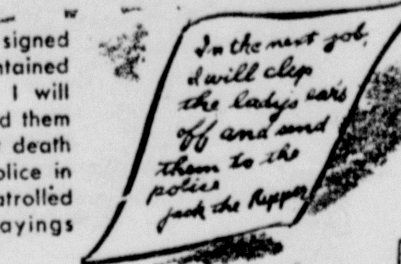 signed
ntained
I will
d them
death
olice in
atrolled
ayings
In the next job,
I will clip
the lady's ears
off and send
them to the
police
Jack the Ripper